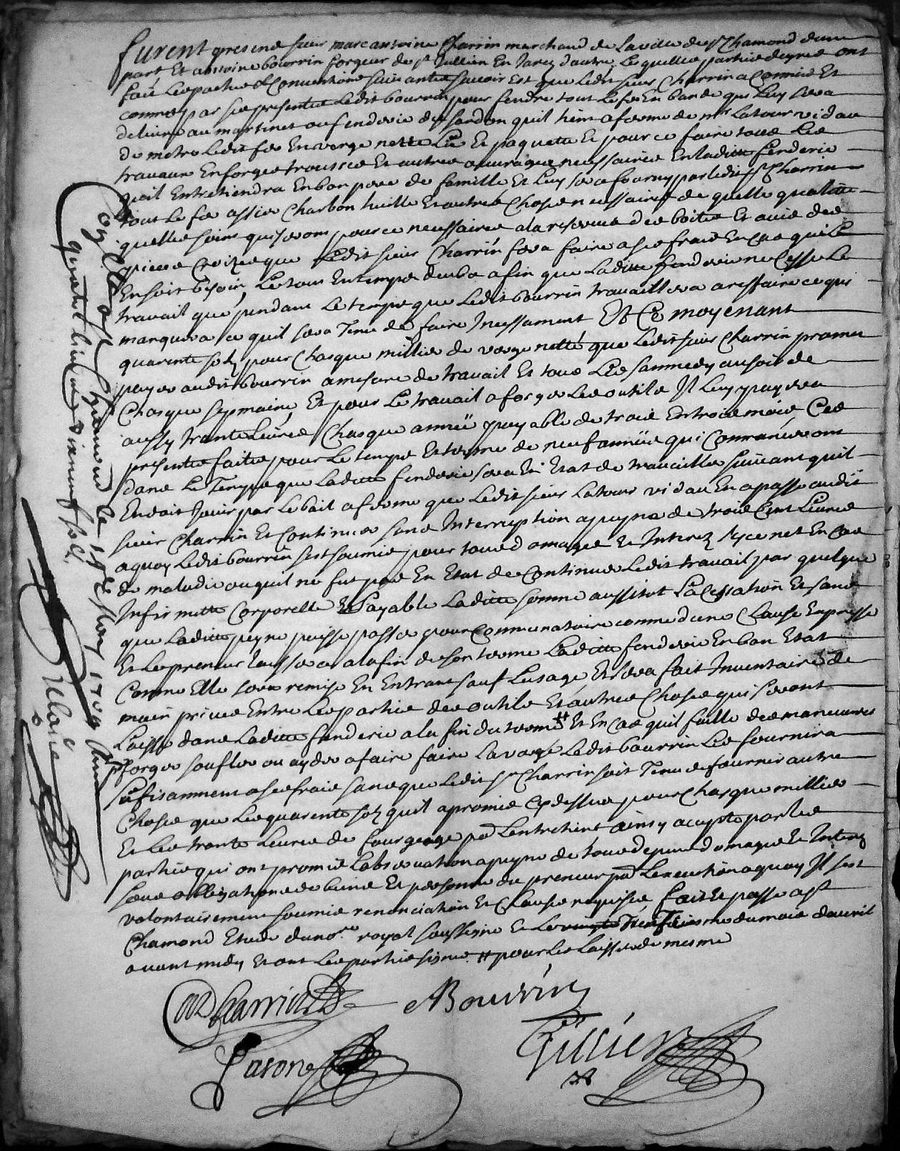 furent presens sieur marc antoine Charrin marchand de la ville de st Chamond dune
part Et antoine bourrin forgeur de st Jullien En Jarez dautre Lesquelles parties de gré ont
fait Les pactes et Conventions suivantes scavoir Est que Ledit sieur Charrin a Commis Et
commet par ses presentes Ledit bourrin pour fendre tout Le fer En bande qui Luy sera
delivré au martinet ou fenderie de quil tient a ferme de mr Latour vidau
de mettre Ledit fer En verge nette Lié Et paqueté Et pour ce faire tous Les
travaux En forge trousses Et autres ouvrages necessaires En Ladite fenderie
quil Entretiendra En bon pere de famille Et Luy sera fourny par Ledit sr Charrin
tout Le fer assier Charbon huille Et autres Choses necessaires de quelle qualité
quelles soint qui seront pour ce necessaires a la reserve des boites Et avis des
pieces Croizes que Ledit sieur Charrin fera faire a ses frais En cas quil
En soit besoin, Le tout En temps deub afin que Ladite fenderie ne Cesse Le
travail que pendant Le temps que Ledit bourrin travaillera a reffaire ce qui
manquera ce quil sera Tenu de faire Incessament Et Ce moyenant
quarente solz pour Chasque millier de verge nette que Ledit sieur Charrin promet
payer audit bourrin a mesure de travail Et tous Les sammedy au soir de
Chasque sepmaine Et pour Le travail a forger Les outils Il Luy payera
aussy trante Livres Chasque année payable de trois En trois mois Ces
presentes faites pour Le temps Et terme de neuf années qui Commanceront
dans Le Temps que Ladite fenderie sera En Etat de travailler suivant quil
En doit Jouir par Le bail a ferme que Ledit sieur Latour vidau En a passé audit
sieur Charrin Et Continuer sans Interruption a peyne de trois Cent Livres
a quoy Ledit bourrin sest soumis pour tous domages Et Interez sy ce nest En Cas
de maladie ou quil ne fut pas En Etat de Continuer Ledit travail par quelque
Infirmitte Corporelle Et payable Ladite somme aussitot La Cessation Et sans
que Ladite peyne puisse passer pour Comminatoire comme dune Clause Expresse
Et Le preneur Laissera a la fin de son terme Ladite fenderie En bon Etat
Comme Elle sera remise En Entrant sauf Lusage Et sera fait Inventaire de
main privée Entre Les parties des outils Et autres Choses qui seront
Laissé dans Ladite fenderie a la fin du terme # Et En Cas quil faille des manœuvres
forger soufler ou aydes a faire faire Lavage Ledit bourrin Les fournira
sufisamment a ses frais sans que Ledit sr Charrin soit Tenu de fournir autre
Chose que Les quarente solz quil a promis Cy dessus pour Chasque millier
Et Les trante Livres de fourgeage pr Lentretient ainsy accepté par Les
parties qui ont promis Lobservation a peyne de tous depens domages Et Interez
sous obligations de biens Et personne du preneur pr Lexecution a quoy Il sest
volontairement soumis renonciation Et Clauses requises fait Et passé a st
Chamond Etude du nore royal soussigné Et Le du mois davril
avant midy Et ont Les parties signé # pour Les Laisser de mesme
Charrin
A Bourrin
Parone
Con lé a st Chamond le 19e may 1704
quarante livres dix neuf solz